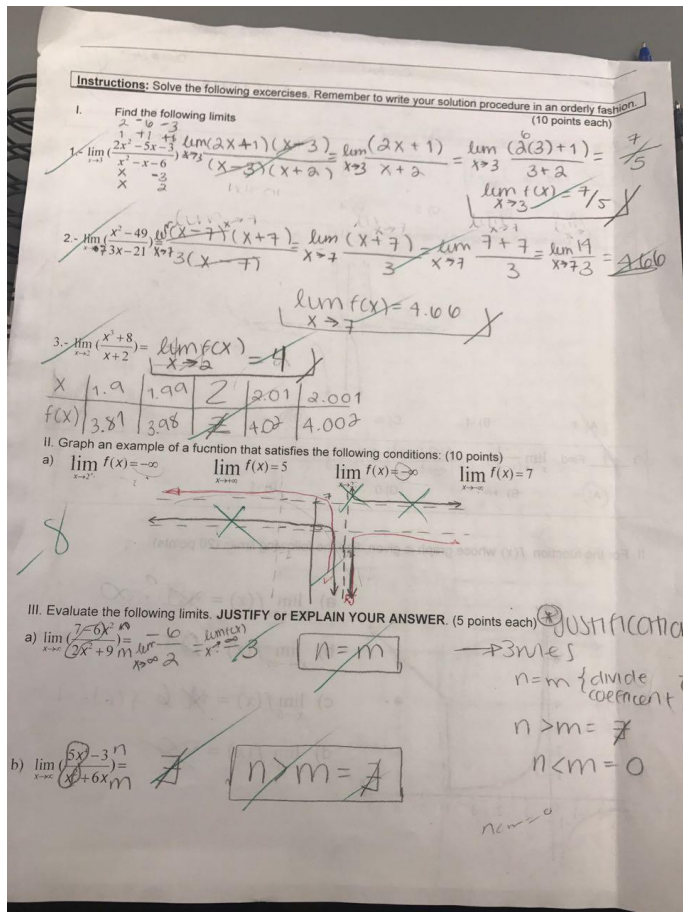 Instructions: Solve the following excercises. Remember to write your solution procedure in an orderly fashion.
(10 points each)
I. Find the following limits
2 -6 -3
1 +1 +1
1.- lim x→3 (2x² - 5x - 3 / x² - x - 6) lim x→3 (2x+1)(x-3) / (x-3)(x+2) = lim x→3 (2x+1) / x+2 = lim x→3 (2(3)+1) / 3+2 = 7/5
6
x -3
x 2
lim x→3 f(x) = 7/5
2.- lim x→7 (x² - 49 / 3x - 21) = lim x→7 (x-7)(x+7) / 3(x-7) = lim x→7 (x+7) / 3 = lim x→7 7+7 / 3 = lim x→7 14 / 3 = 4.66
lim x→7 f(x) = 4.66
3.- lim x→2 (x³+8 / x+2) = lim x→2 f(x) = 4
x | 1.9 | 1.99 | 2 | 2.01 | 2.001
f(x) | 3.81 | 3.98 | ∄ | 4.02 | 4.002
II. Graph an example of a fucntion that satisfies the following conditions: (10 points)
a) lim x→2⁺ f(x)=-∞ lim x→+∞ f(x)=5 lim x→2⁻ f(x)=-∞ lim x→-∞ f(x)=7
8
III. Evaluate the following limits. JUSTIFY or EXPLAIN YOUR ANSWER. (5 points each)
a) lim x→∞ (7-6x² n / 2x²+9 m) = lim x→∞ -6 / 2 = lim f(x) x→∞ = -3
n=m
b) lim x→∞ (5x³-3 n / x²+6x m) = ∄
n>m = ∄
→3 rules
n=m {divide
coefficent
n>m= ∄
n<m=0
n<m=0